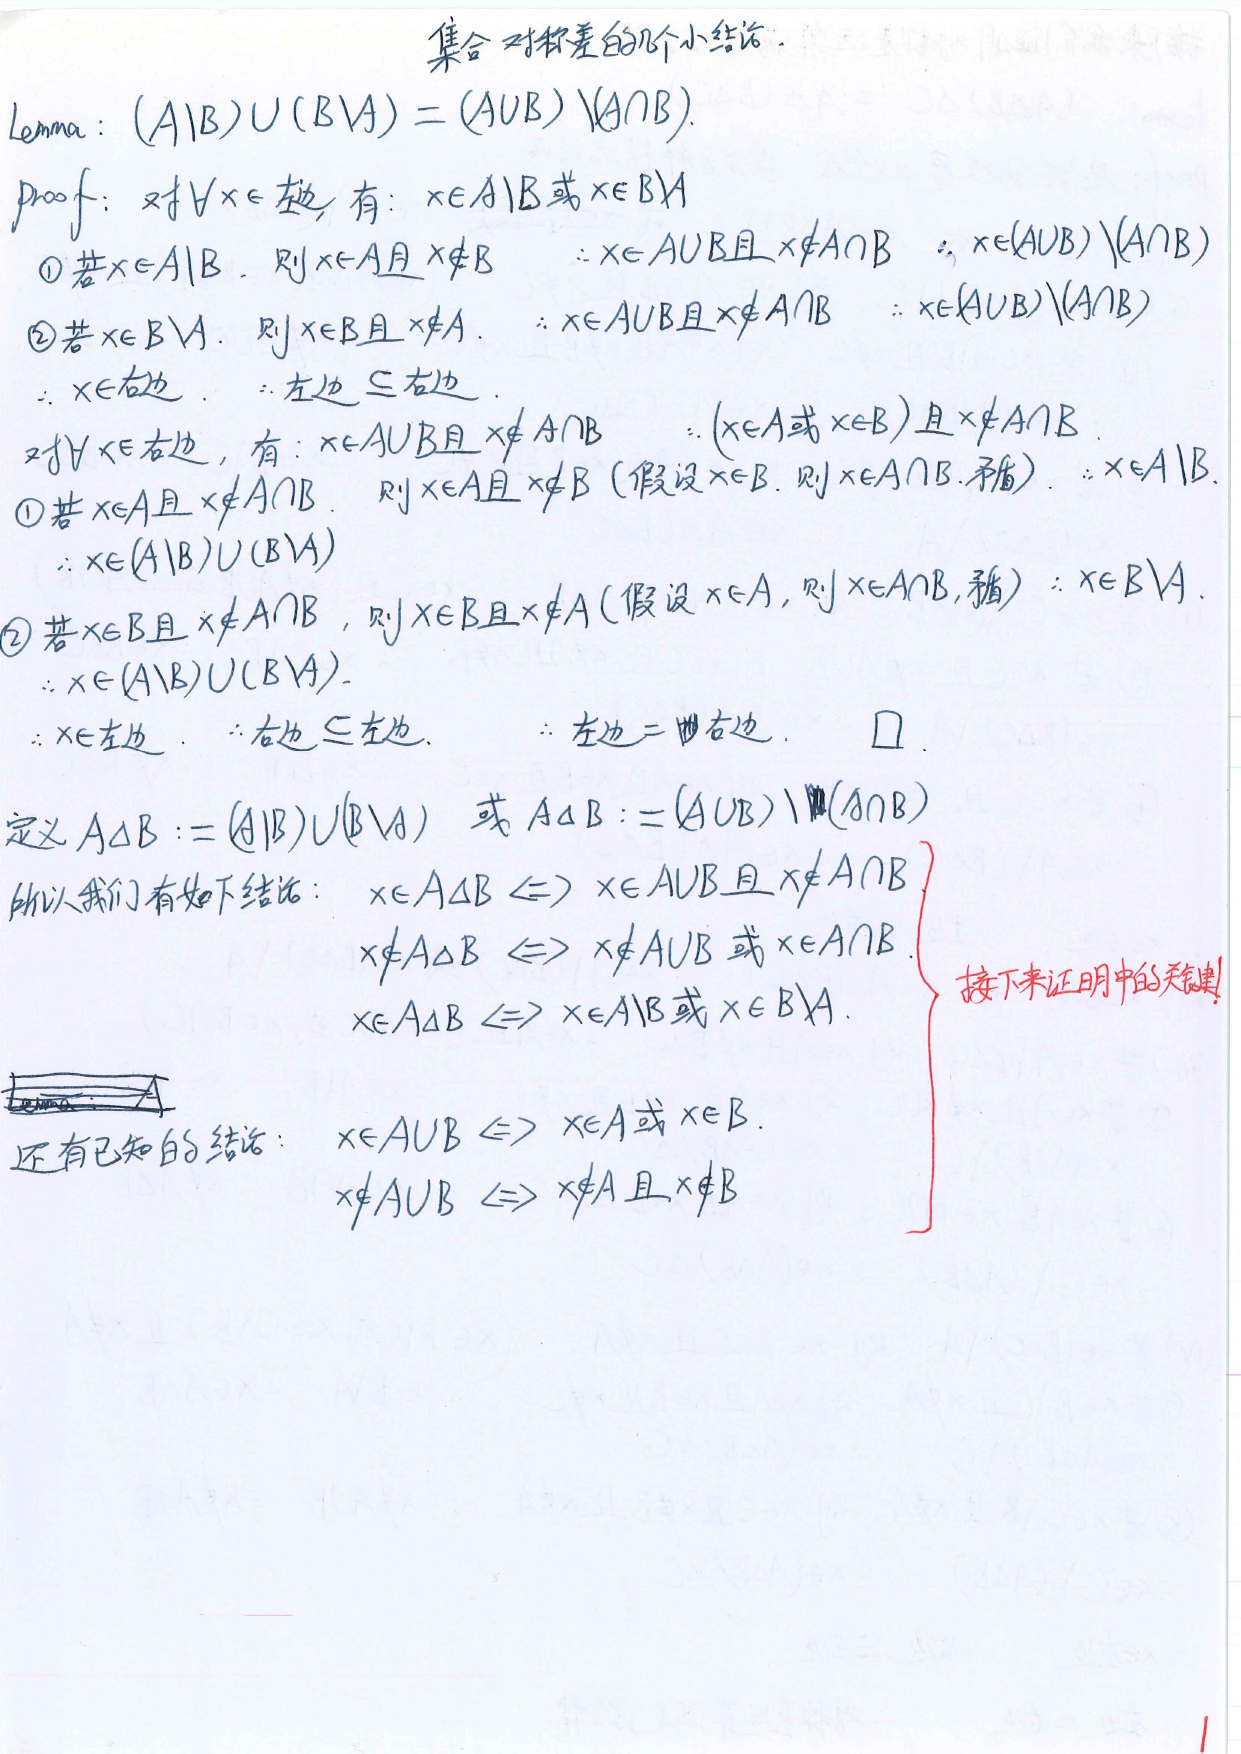 集合对称差的几个小结论.
Lemma: (A\B)∪(B\A)=(A∪B)\(A∩B).
proof: 对∀x∈左边, 有: x∈A\B或x∈B\A
①若x∈A\B. 则x∈A且x∉B ∴x∈A∪B且x∉A∩B ∴x∈(A∪B)\(A∩B)
②若x∈B\A. 则x∈B且x∉A ∴x∈A∪B且x∉A∩B ∴x∈(A∪B)\(A∩B)
∴x∈右边. ∴左边⊆右边.
对∀x∈右边, 有: x∈A∪B且x∉A∩B ∴(x∈A或x∈B)且x∉A∩B.
①若x∈A且x∉A∩B. 则x∈A且x∉B(假设x∈B. 则x∈A∩B.矛盾). ∴x∈A\B.
∴x∈(A\B)∪(B\A)
②若x∈B且x∉A∩B, 则x∈B且x∉A(假设x∈A, 则x∈A∩B,矛盾) ∴x∈B\A.
∴x∈(A\B)∪(B\A).
∴x∈左边. ∴右边⊆左边. ∴左边=右边. □.
定义A△B:=(A\B)∪(B\A) 或A△B:=(A∪B)\(A∩B)
所以我们有如下结论: x∈A△B⇔x∈A∪B且x∉A∩B
x∉A△B⇔x∉A∪B或x∈A∩B.
接下来证明中的关键!
x∈A△B⇔x∈A\B或x∈B\A.
Lemma:
还有已知的结论: x∈A∪B⇔x∈A或x∈B.
x∉A∪B⇔x∉A且x∉B
1